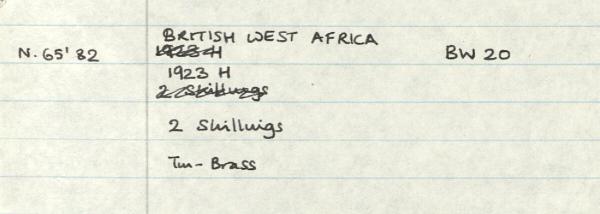 BRITISH WEST AFRICA
N. 65' 82 1923 H BW 20
1923 H
2 Shillings
2 Shillings
Tin-Brass